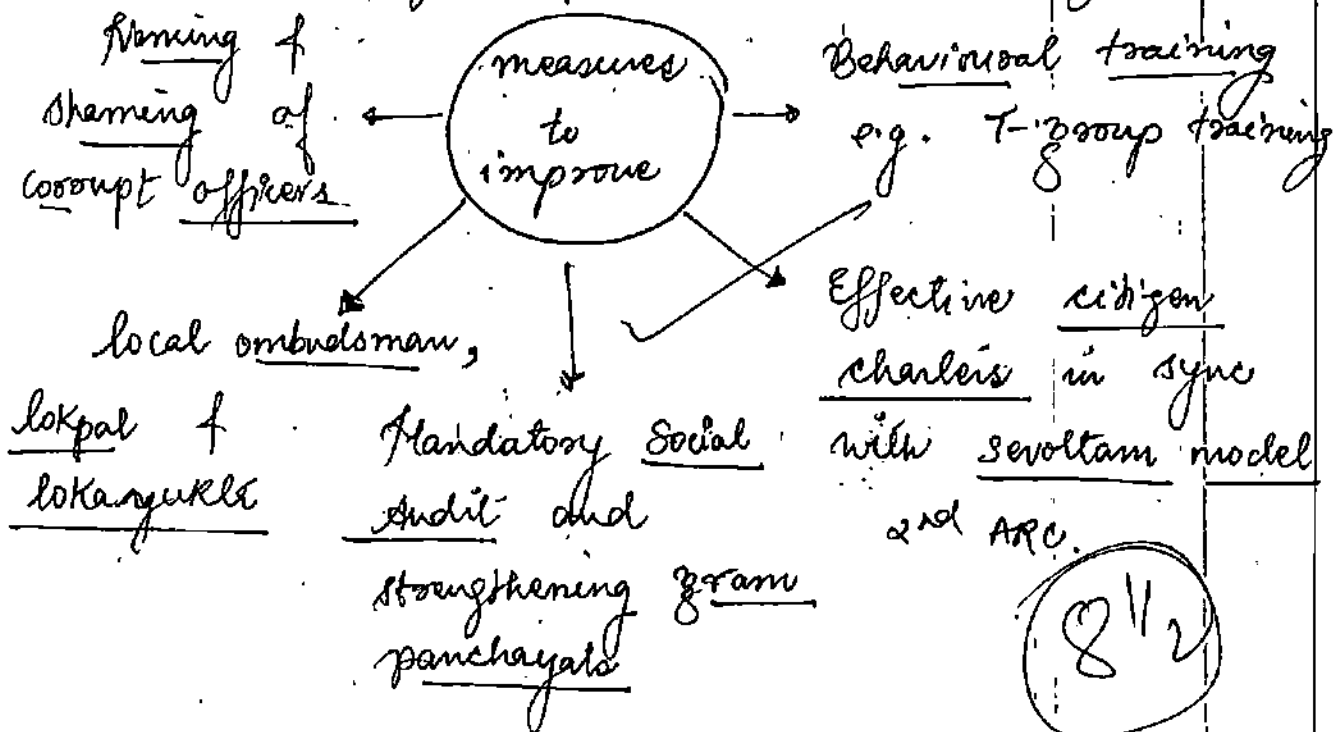 measures
to
improve
Naming &
shaming of
corrupt officers
Behavioural training
e.g. T-group training
local ombudsman,
lokpal &
lokayukta
Mandatory Social
Audit and
strengthening gram
panchayats
Effective citizen
charters in sync
with sevottam model
2nd ARC.
8 1/2